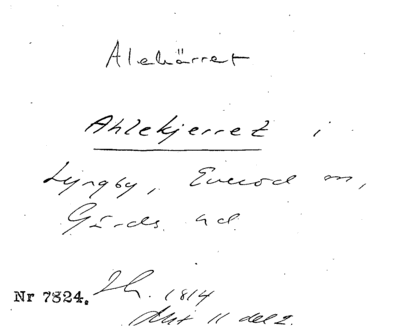 Alekärret
Ahlekjerret i
Lyngby, Everöd m,
Gärds hd.
Nr 7824. 1814
Akt 11 del 2